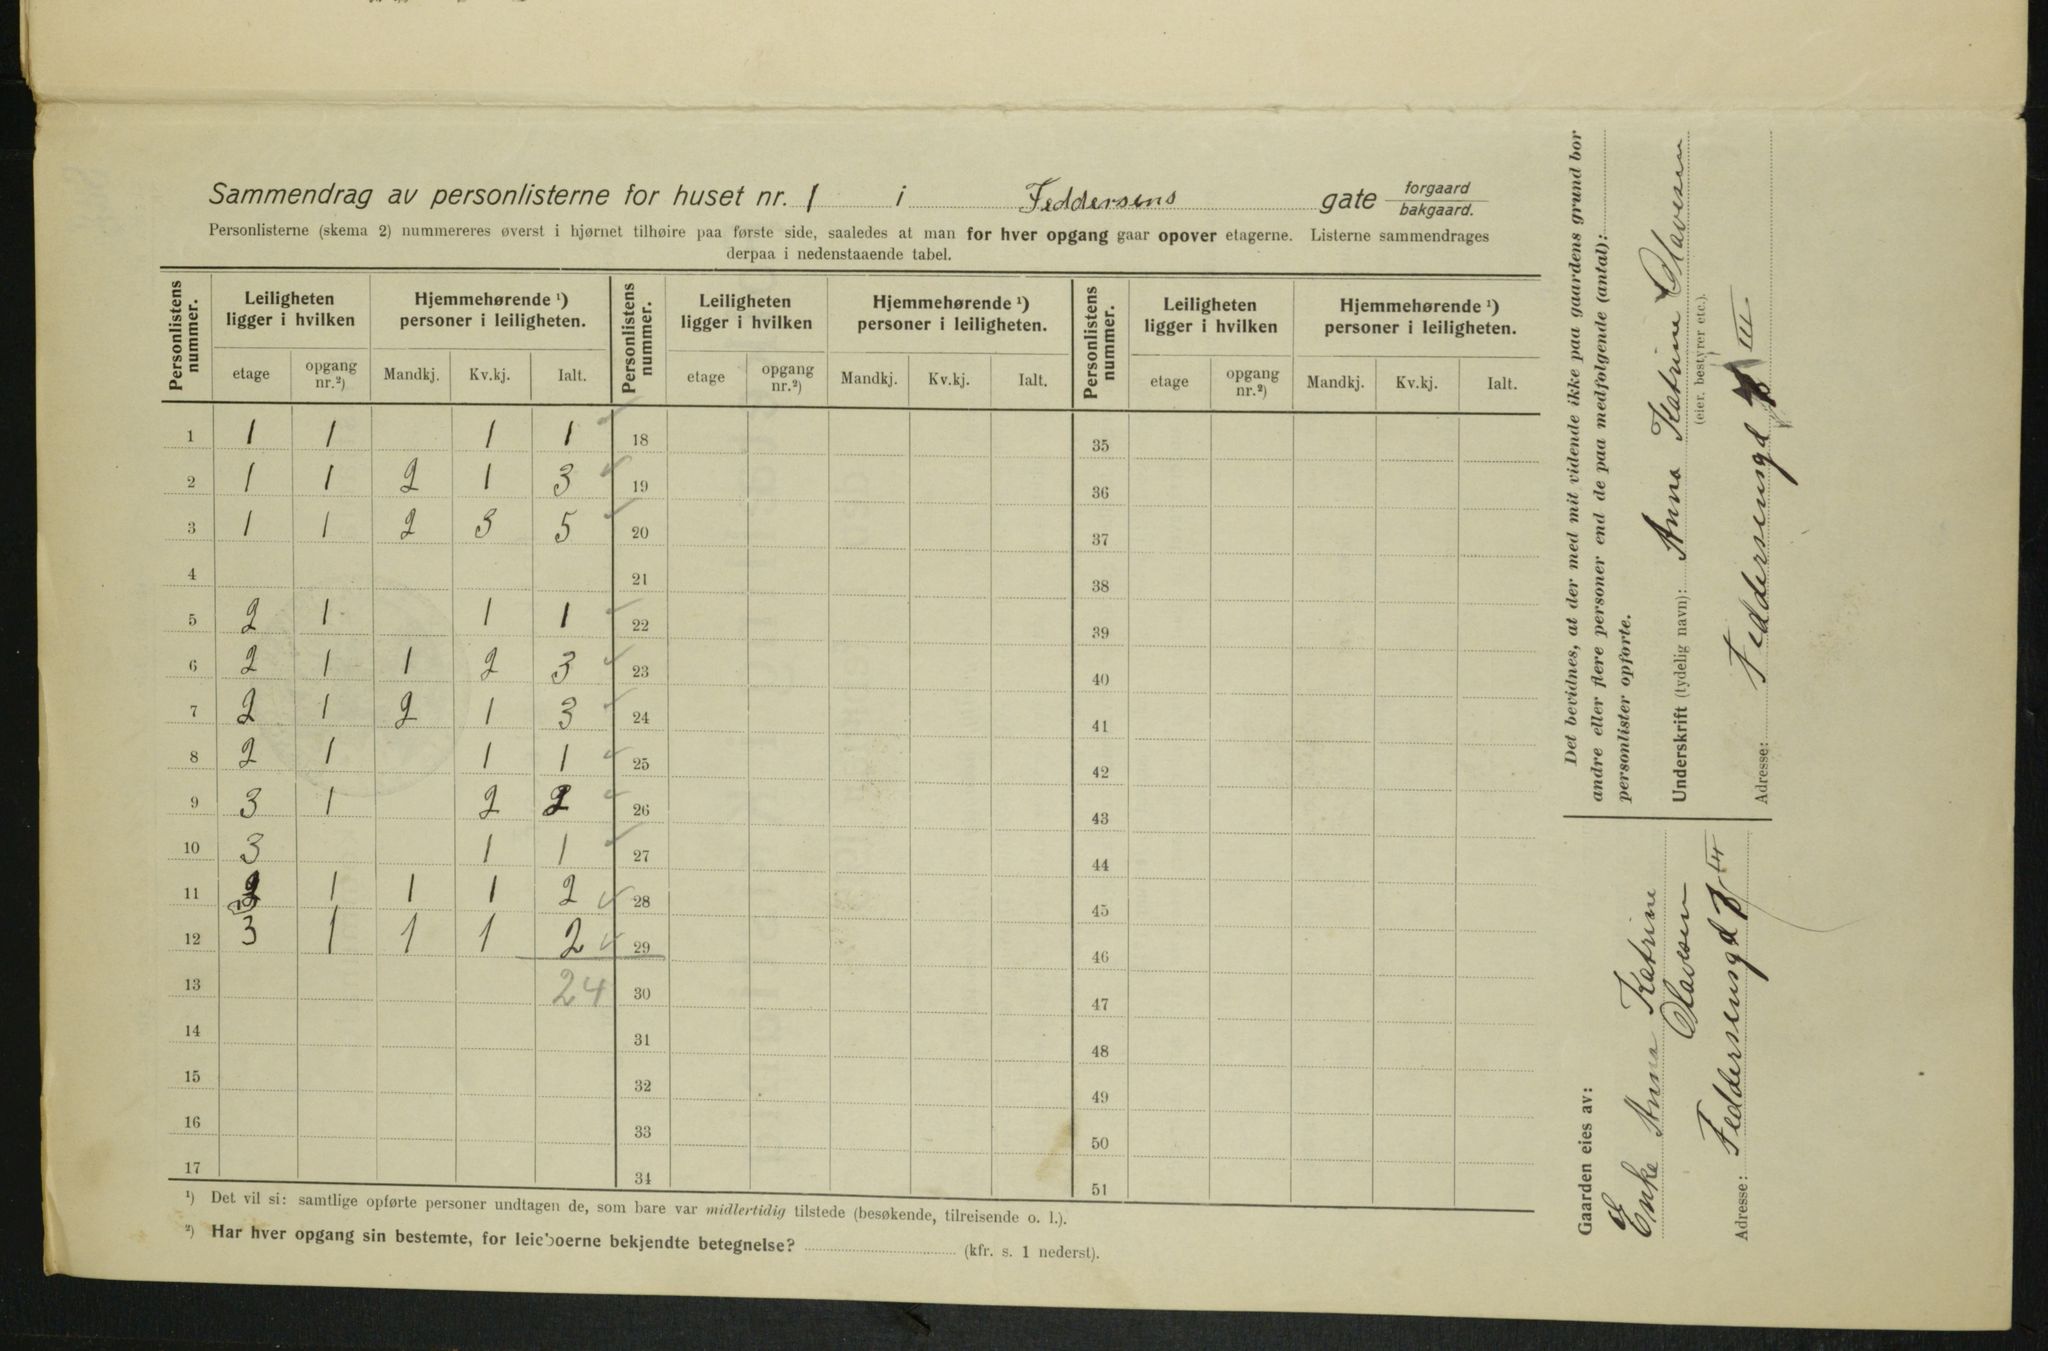 Sammendrag av personlisterne for huset nr. 1 i Feddersens gate forgaard bakgaard.
Personlisterne (skema 2) nummereres øverst i hjørnet tilhøire paa første side, saaledes at man for hver opgang gaar opover etagerne. Listerne sammendrages
derpaa i nedenstaaende tabel.
Personlistens nummer. Leiligheten ligger i hvilken Hjemmehørende ¹) personer i leiligheten. Personlistens nummer. Leiligheten ligger i hvilken Hjemmehørende ¹) personer i leiligheten. Personlistens nummer. Leiligheten ligger i hvilken Hjemmehørende ¹) personer i leiligheten.
etage opgang nr.²) Mandkj. Kv.kj. Ialt. etage opgang nr.²) Mandkj. Kv.kj. Ialt. etage opgang nr.²) Mandkj. Kv.kj. Ialt.
1 1 1 1 1 18 35
2 1 1 2 1 3 19 36
3 1 1 2 3 5 20 37
4 21 38
5 2 1 1 1 22 39
6 2 1 1 2 3 23 40
7 2 1 2 1 3 24 41
8 2 1 1 1 25 42
9 3 1 2 2 26 43
10 3 1 1 27 44
11 1 1 1 2 28 45
12 3 1 1 1 2 29 46
13 24 30 47
14 31 48
15 32 49
16 33 50
17 34 51
¹) Det vil si: samtlige opførte personer undtagen de, som bare var midlertidig tilstede (besøkende, tilreisende o. l.).
²) Har hver opgang sin bestemte, for leieboerne bekjendte betegnelse? (kfr. s. 1 nederst).
Det bevidnes, at der med mit vidende ikke paa gaardens grund bor
andre eller flere personer end de paa medfølgende (antal):
personlister opførte.
Underskrift (tydelig navn): Anna Katrine Olavesen
(eier, bestyrer etc.).
Adresse: Feddersensgd III
Gaarden eies av:
Enke Anna Katrine
Olavesen
Adresse: Feddersensgd III